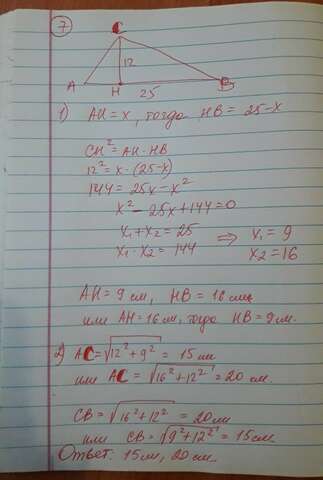 7
C
12
A H 25 B
1) AH = x, тогда HB = 25-x
CH² = AH·HB
12² = x·(25-x)
144 = 25x - x²
x² - 25x + 144 = 0
x₁ + x₂ = 25 ⇒ x₁ = 9
x₁ · x₂ = 144 x₂ = 16
AH = 9 см, HB = 16 см
или AH = 16 см, тогда HB = 9 см.
2) AC = √12² + 9² = 15 см
или AC = √16² + 12² = 20 см.
CB = √16² + 12² = 20 см
или CB = √9² + 12² = 15 см
Ответ: 15 см, 20 см.